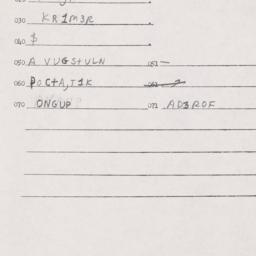 030 KR1M3R
040 $
050 A VUGStULN 051 —
060 POCtA,T1K 061
070 ONGUP 071 AD3ROF